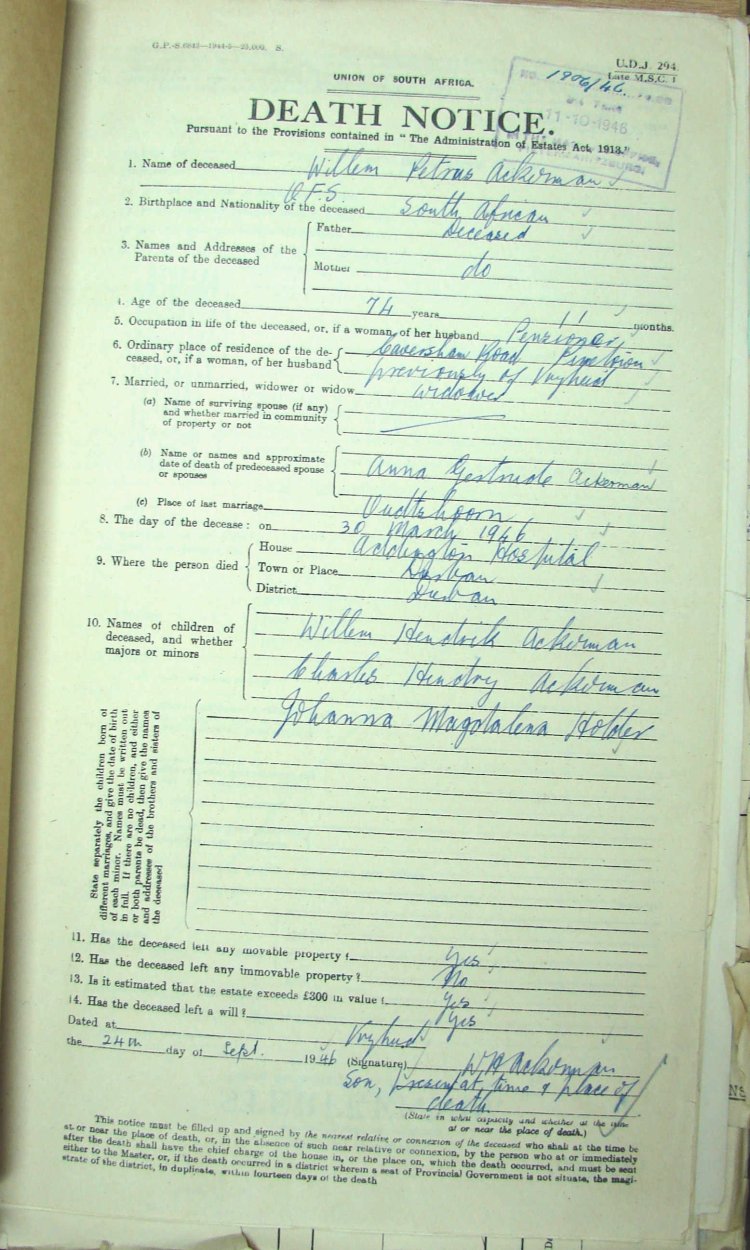 G.P.-S.6843—1944-5—25,000. S.
U.D.J. 294.
(Late M.S.C. 1
UNION OF SOUTH AFRICA.
NO. 1906/46
11-10-1946
DEATH NOTICE.
Pursuant to the Provisions contained in "The Administration of Estates Act, 1913."
1. Name of deceased Willem Petrus Ackerman
O.F.S.
2. Birthplace and Nationality of the deceased South African
3. Names and Addresses of the Parents of the deceased
Father Deceased
Mother do
4. Age of the deceased 74 years 11 months.
5. Occupation in life of the deceased, or, if a woman, of her husband Pensioner
6. Ordinary place of residence of the de- Caversham Road Pinetown
ceased, or, if a woman, of her husband previously of Vryheid
7. Married, or unmarried, widower or widow widower
(a) Name of surviving spouse (if any)
and whether married in community
of property or not
(b) Name or names and approximate
date of death of predeceased spouse Anna Gertrude Ackerman
or spouses
(c) Place of last marriage Oudtshoorn
8. The day of the decease: on 30 March 1946
9. Where the person died
House Addington Hospital
Town or Place Durban
District Durban
10. Names of children of
deceased, and whether
majors or minors
Willem Hendrik Ackerman
Charles Hendry Ackerman
Johanna Magdalena Holder
State separately the children born of
different marriages, and give the date of birth
of each minor. Names must be written out
in full. If there are no children, and either
or both parents be dead, then give the names
and addresses of the brothers and sisters of
the deceased
11. Has the deceased left any movable property? Yes
12. Has the deceased left any immovable property? No
13. Is it estimated that the estate exceeds £300 in value? Yes
14. Has the deceased left a will? Yes
Dated at Vryheid
the 24th day of Sept. 1946 (Signature) W H Ackerman
Son, present at time & place of
death
(State in what capacity and whether at the time
at or near the place of death.)
This notice must be filled up and signed by the nearest relative or connexion of the deceased who shall at the time be
at or near the place of death, or, in the absence of such near relative or connexion, by the person who at or immediately
after the death shall have the chief charge of the house in, or the place on, which the death occurred, and must be sent
either to the Master, or, if the death occurred in a district wherein a seat of Provincial Government is not situate, the magi-
strate of the district, in duplicate, within fourteen days of the death